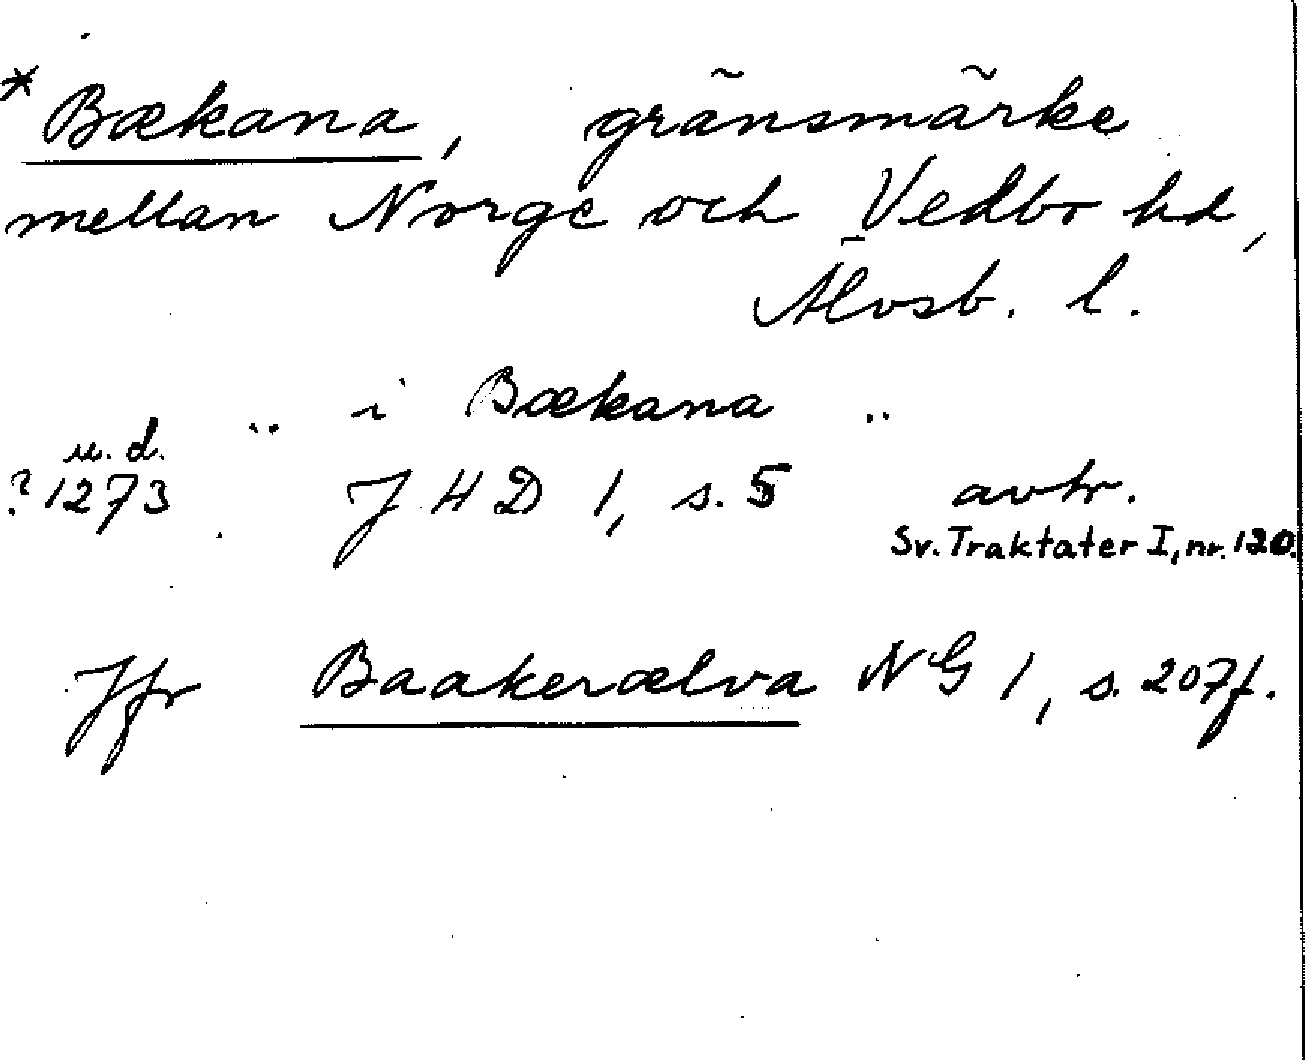 * Bækana, gränsmärke
mellan Norge och Vedbo hd,
Älvsb. l.
" i Bækana "
u. d.
? 1273 J H D 1, s. 5 avtr.
Sv. Traktater I, nr. 120.
Jfr Baakerælva NG 1, s. 207f.